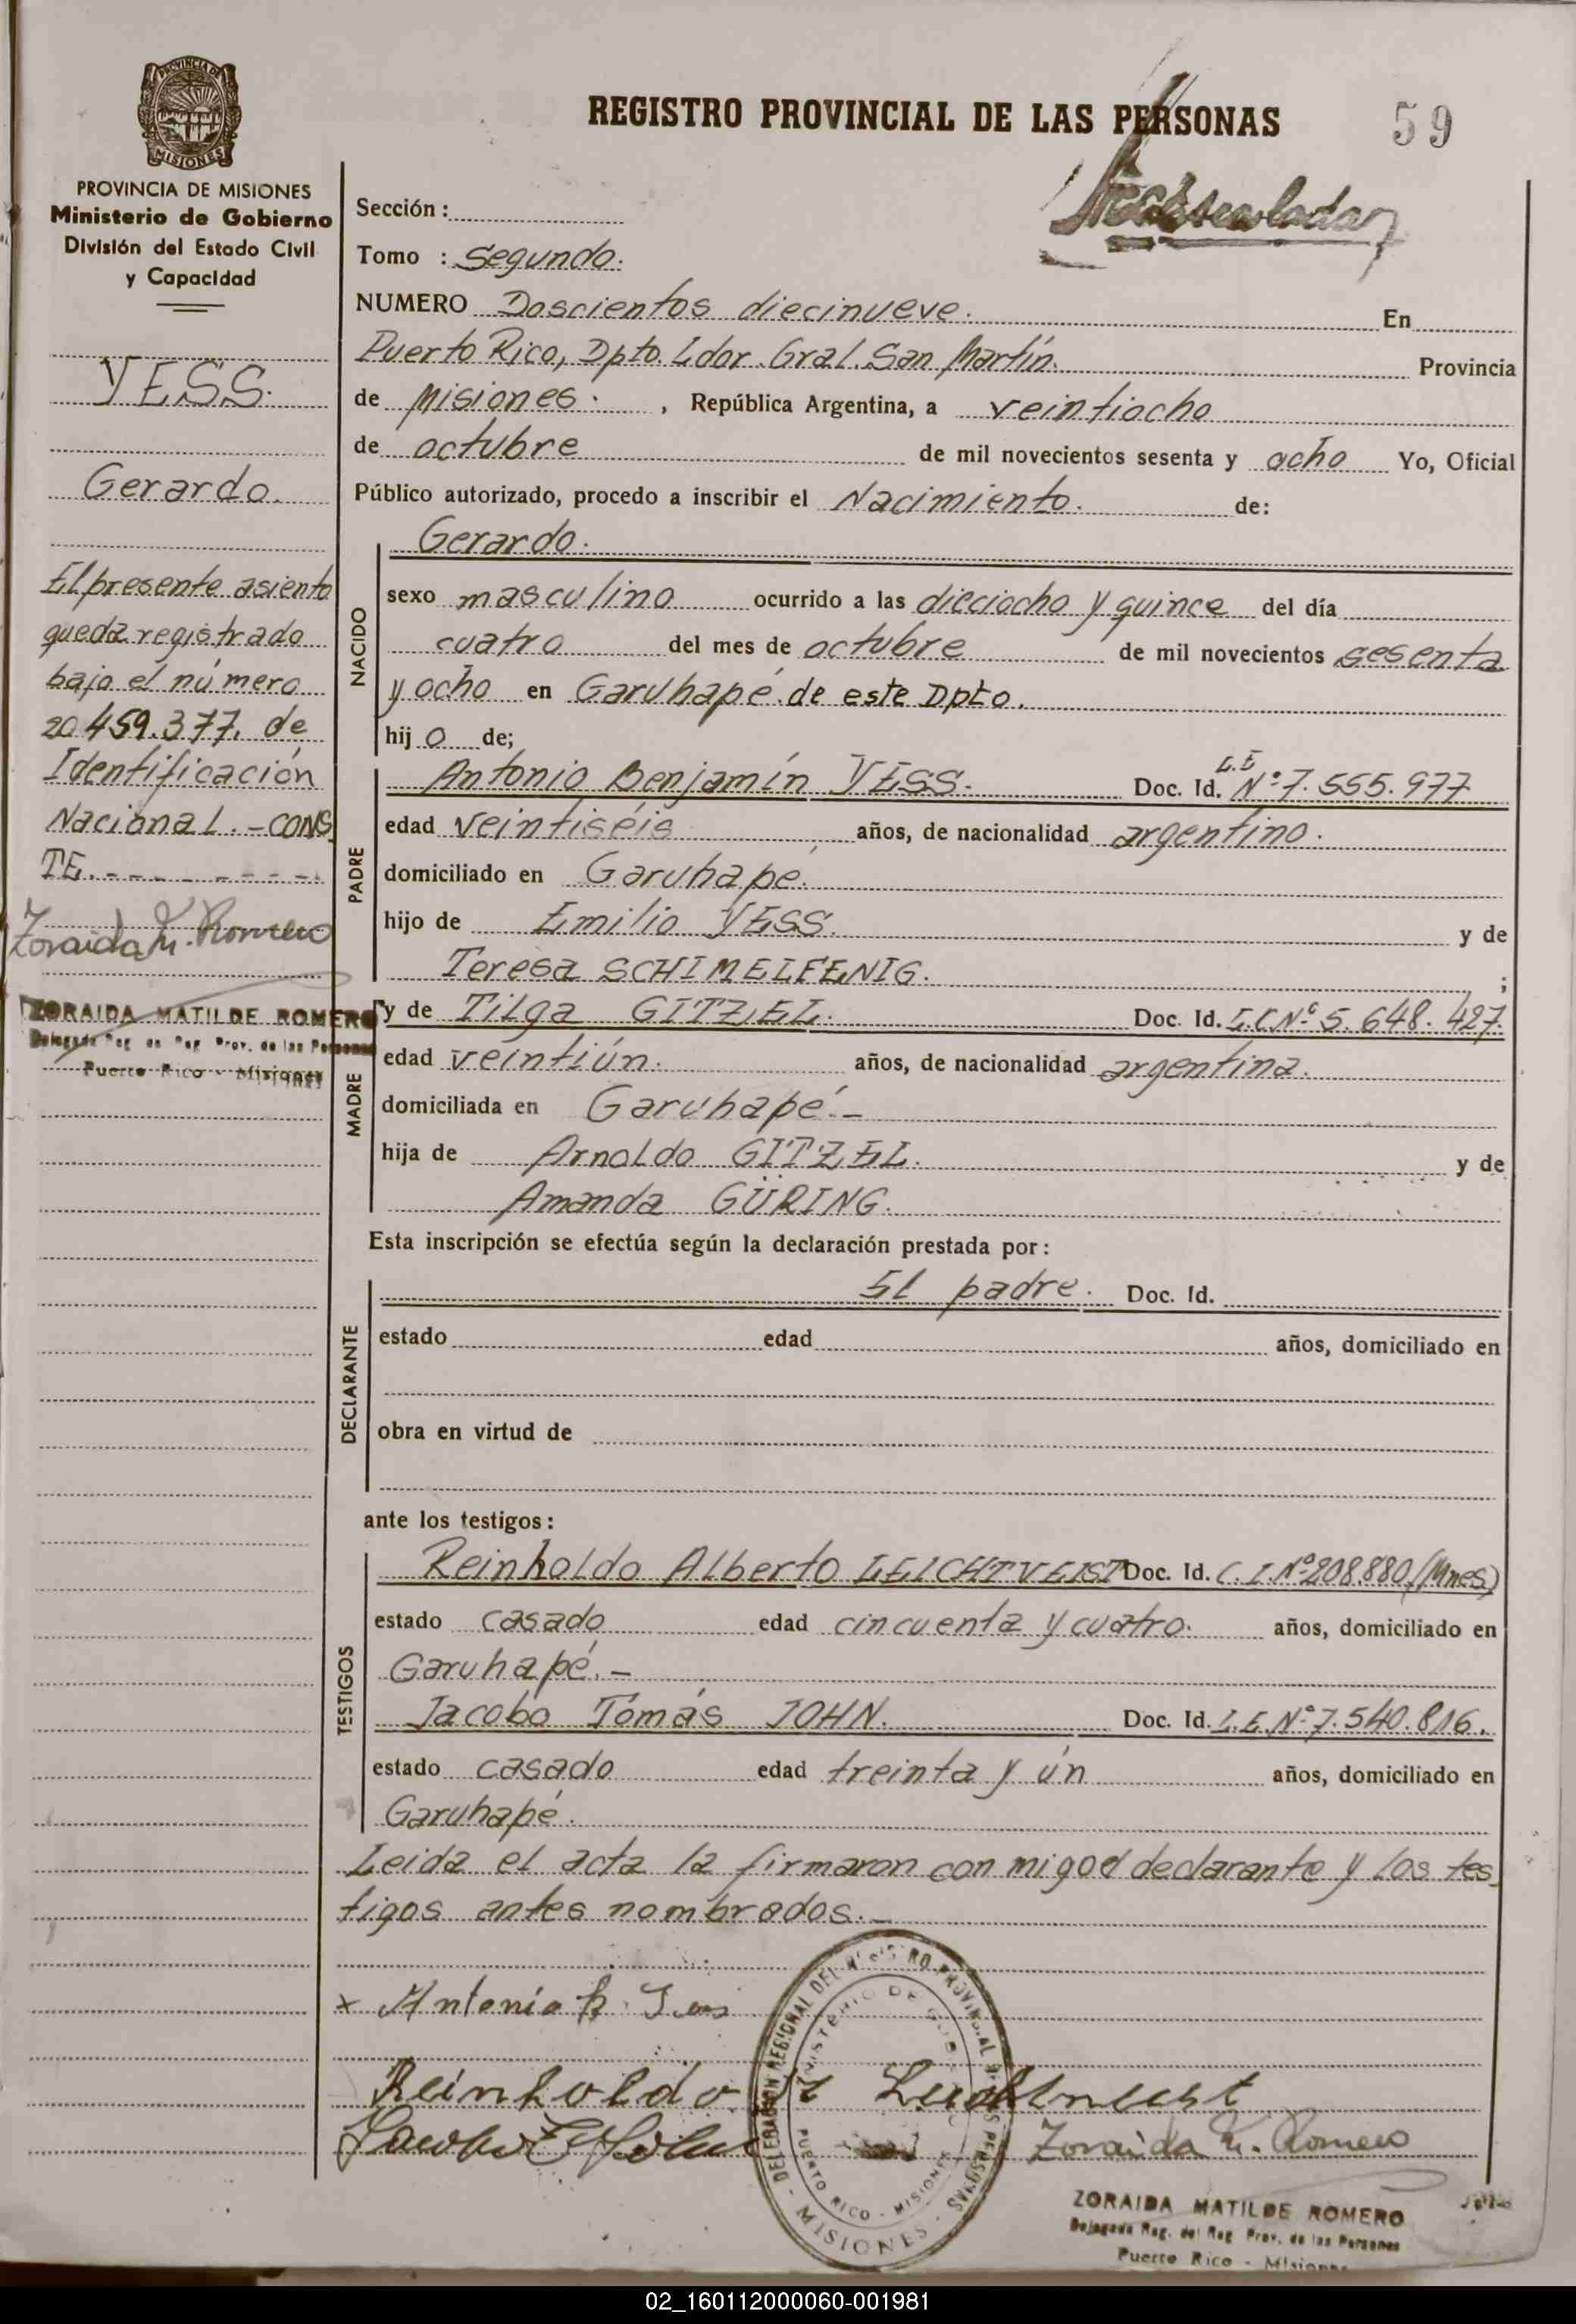 REGISTRO PROVINCIAL DE LAS PERSONAS
59
PROVINCIA DE MISIONES
Ministerio de Gobierno
División del Estado Civil
y Capacidad
YESS.
Gerardo.
El presente asiento
queda registrado
bajo el número
20.459.377. de
Identificación
Nacional.-CONS
TE.-
Zoraida M. Romero
ZORAIDA MATILDE ROMERO
Delegada Reg. de Reg. Prov. de las Personas
Puerto Rico - Misiones
Sección:
Tomo : Segundo.
NUMERO Doscientos diecinueve. En
Puerto Rico, Dpto. Ldor. Gral. San Martín. Provincia
de Misiones. , República Argentina, a veintiocho
de octubre de mil novecientos sesenta y ocho Yo, Oficial
Público autorizado, procedo a inscribir el Nacimiento. de:
NACIDO
Gerardo.
sexo masculino ocurrido a las dieciocho y quince del día
cuatro del mes de octubre de mil novecientos sesenta
y ocho en Garuhapé de este Dpto.
hij o de;
PADRE
Antonio Benjamín YESS. Doc. Id. L.E Nº 7.555.977
edad veintiséis años, de nacionalidad argentino.
domiciliado en Garuhapé.
hijo de Emilio YESS. y de
Teresa SCHIMELFENIG. ;
MADRE
y de Tilga GITZEL. Doc. Id. L.C.Nº 5.648.427.
edad veintiún. años, de nacionalidad argentina.
domiciliada en Garuhapé.-
hija de Arnoldo GITZEL. y de
Amanda GÜRING.
Esta inscripción se efectúa según la declaración prestada por:
DECLARANTE
El padre. Doc. Id.
estado edad años, domiciliado en
obra en virtud de
ante los testigos:
TESTIGOS
Reinholdo Alberto LEICHTVEIST Doc. Id. C.I.Nº 208.880 (Mnes)
estado casado edad cincuenta y cuatro. años, domiciliado en
Garuhapé.-
Jacobo Tomás JOHN. Doc. Id. L.E.Nº 7.540.816.
estado casado edad treinta y ún años, domiciliado en
Garuhapé.
Leida el acta la firmaron con migo el declarante y los tes
tigos antes nombrados.-
x Antonio B. Yess
Reinholdo
Zoraida M. Romero
DELEGACION REGIONAL DEL REGISTRO PROVINCIAL DE LAS PERSONAS - MISIONES -
MINISTERIO DE GOBIERNO
PUERTO RICO - MISIONES
ZORAIDA MATILDE ROMERO
Delegada Reg. del Reg. Prov. de las Personas
Puerto Rico - Misiones
02_160112000060-001981